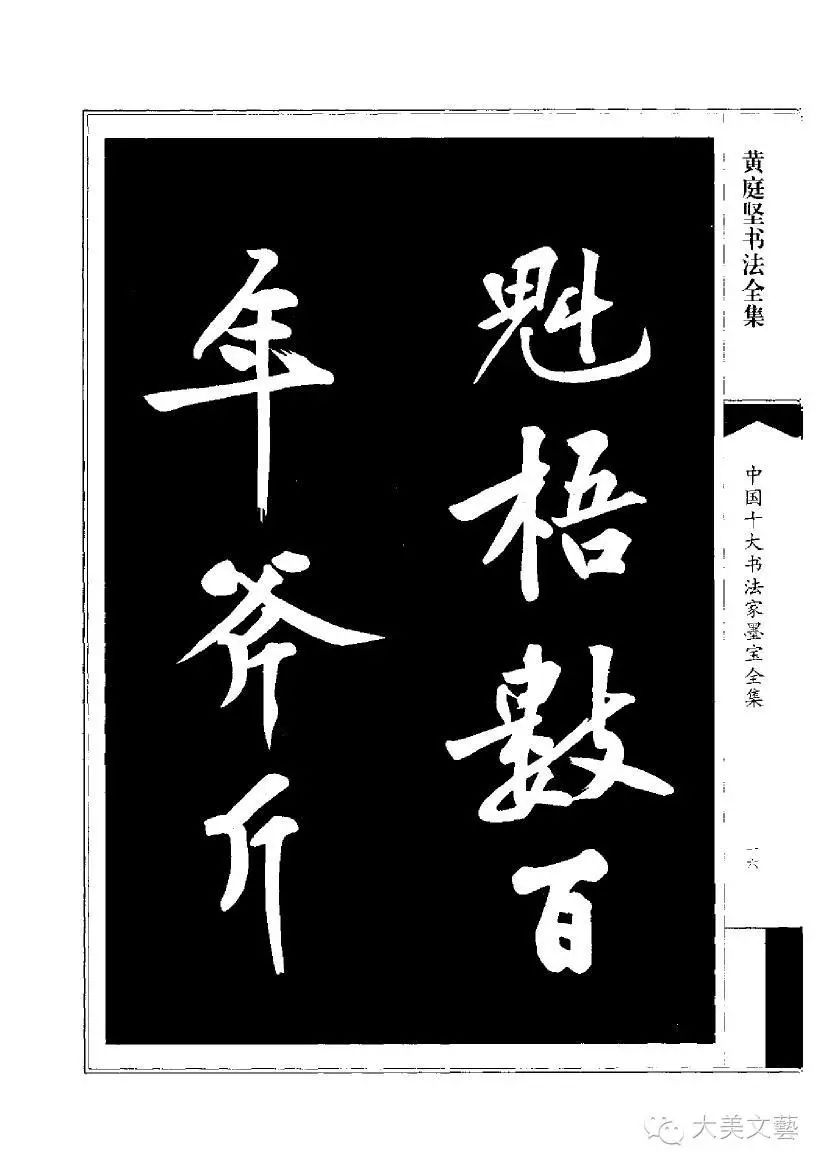 魁梧數百
年斧斤
黄庭坚书法全集
中国十大书法家墨宝全集
一六
大美文藝